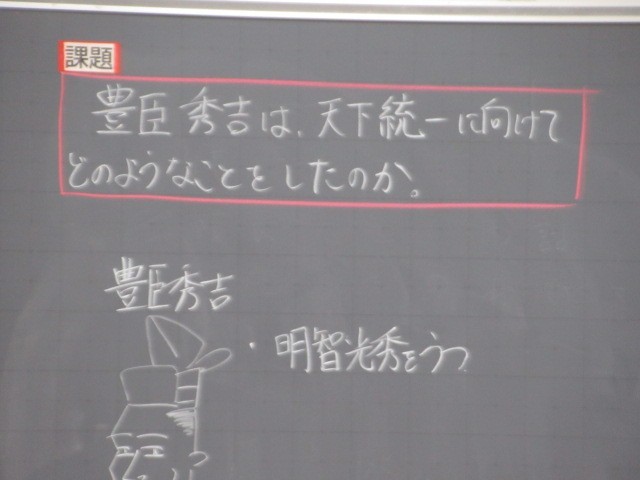 課題
豊臣秀吉は、天下統一に向けて
どのようなことをしたのか。
豊臣秀吉
・明智光秀をうつ